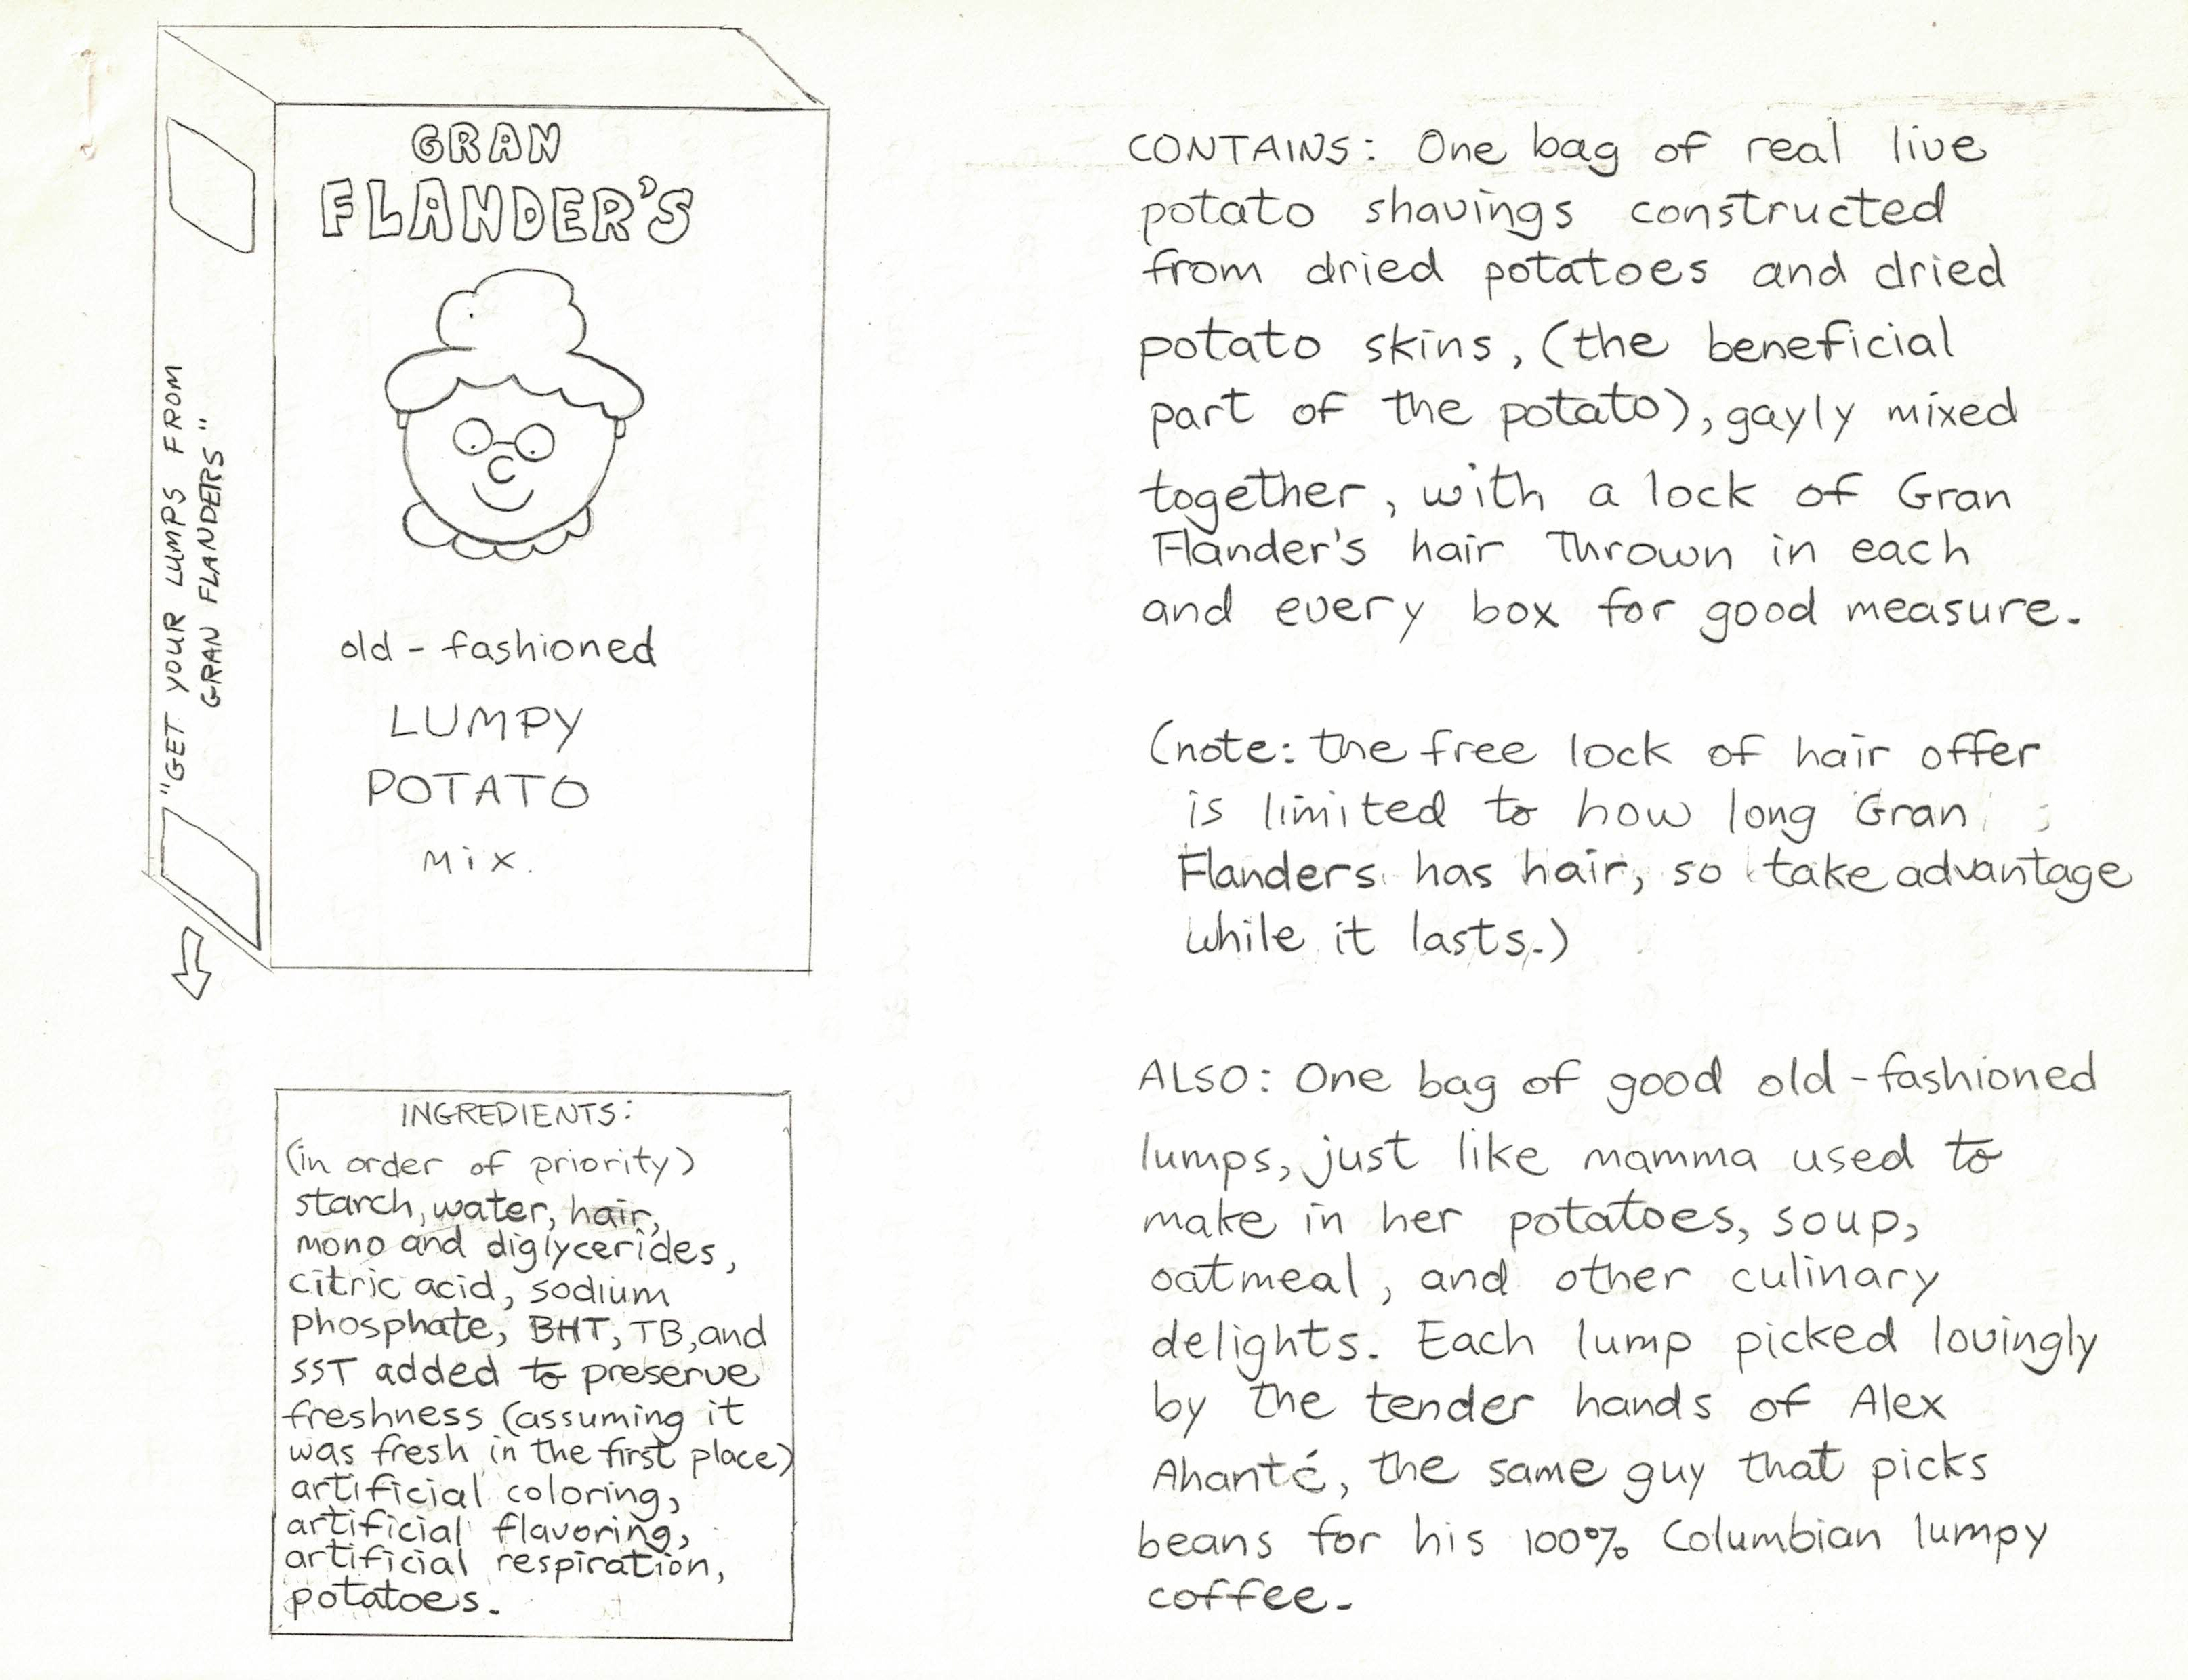 GRAN
FLANDER'S
old-fashioned
LUMPY
POTATO
Mix.
"GET YOUR LUMPS FROM
GRAN FLANDERS"
INGREDIENTS:
(in order of priority)
starch, water, hair,
mono and diglycerides,
citric acid, sodium
phosphate, BHT, TB, and
SST added to preserve
freshness (assuming it
was fresh in the first place)
artificial coloring,
artificial flavoring,
artificial respiration,
potatoes.
CONTAINS: One bag of real live
potato shavings constructed
from dried potatoes and dried
potato skins, (the beneficial
part of the potato), gayly mixed
together, with a lock of Gran
Flander's hair thrown in each
and every box for good measure.
(note: the free lock of hair offer
is limited to how long Gran
Flanders has hair, so take advantage
while it lasts.)
ALSO: One bag of good old-fashioned
lumps, just like mamma used to
make in her potatoes, soup,
oatmeal, and other culinary
delights. Each lump picked lovingly
by the tender hands of Alex
Ahanté, the same guy that picks
beans for his 100% Columbian lumpy
coffee.